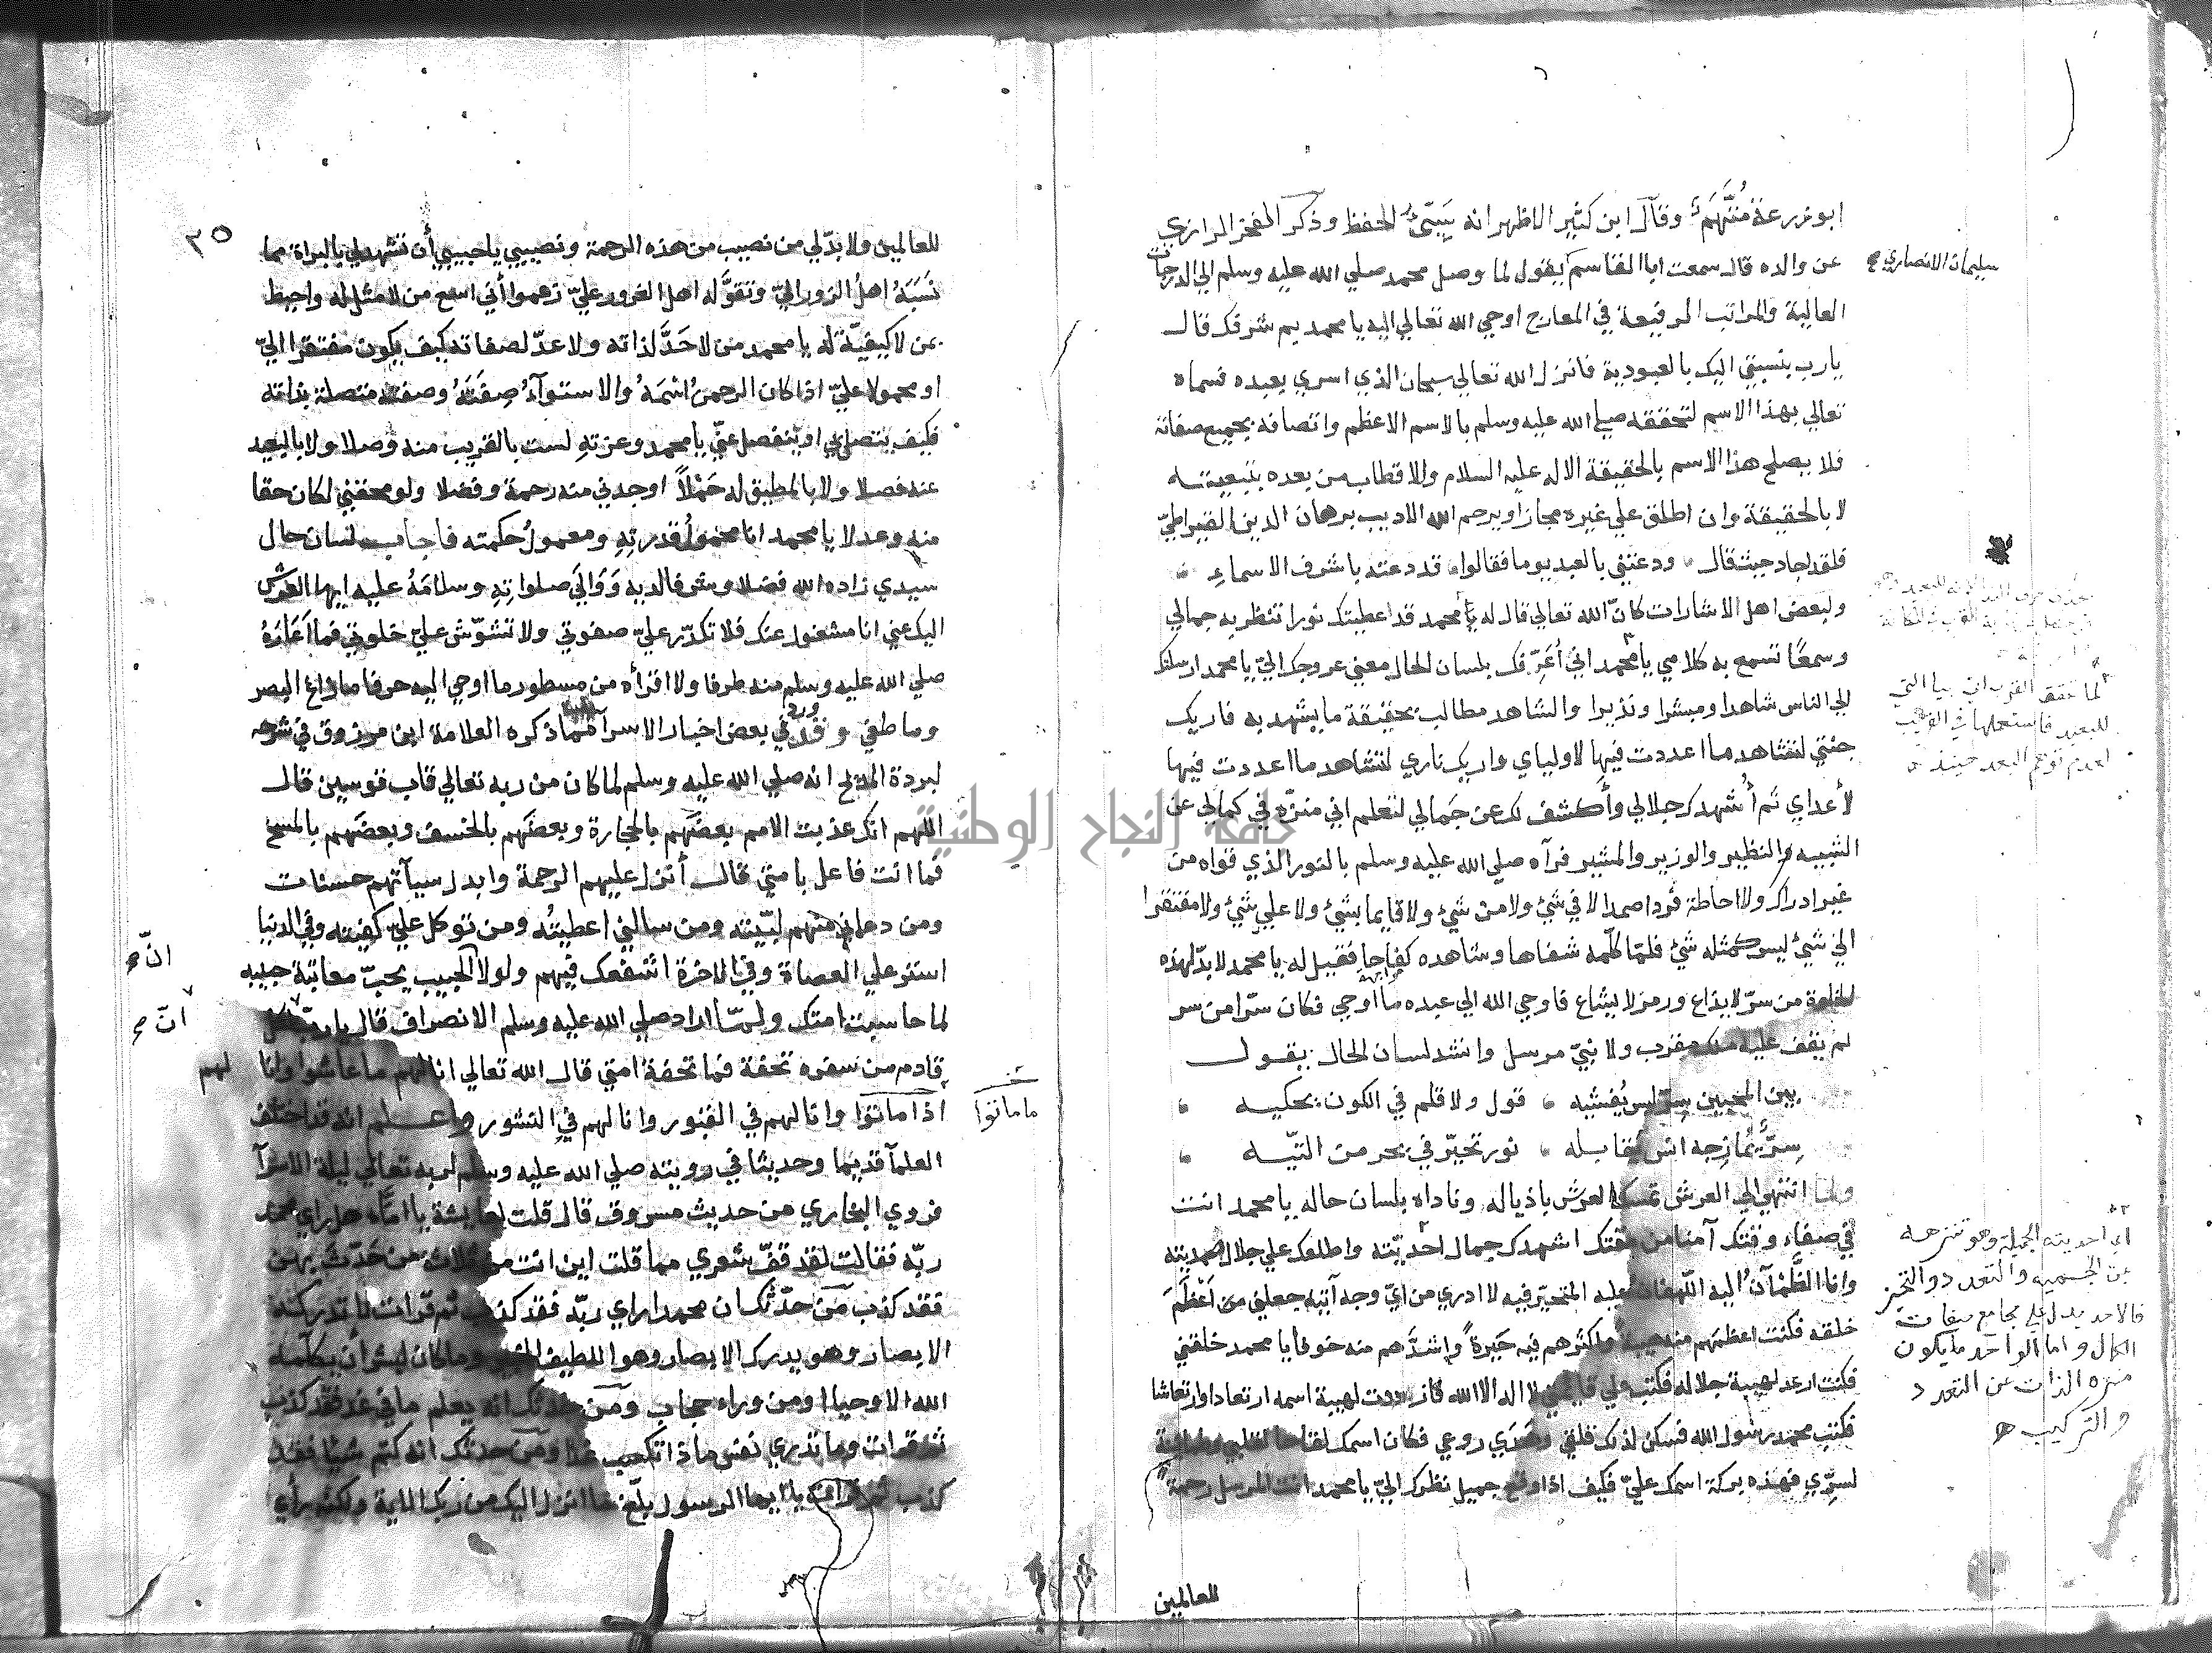 ابو زرعة متهم وقال ابن كثير الاظهر انه سيئ الحفظ وذكر الفخر الرازي
عن والده قال سمعت ابا القاسم يقول لما وصل محمد صلي الله عليه وسلم الي الدرجات
سليمان الانصاري صح
العالية والمراتب الرفيعة في المعارج اوحي الله تعالي اليه يا محمد بم شرفك قال
يارب بنسبتي اليك بالعبودية فانزل الله تعالي سبحان الذي اسري بعبده فسماه
تعالي بهذا الاسم لتحققه صلي الله عليه وسلم بالاسم الاعظم واتصافه بجميع صفاته
فلا يصلح هذا الاسم بالحقيقة الا له عليه السلام والاقطاب من بعده بتبعيته
لا بالحقيقة وان اطلق علي غيره مجازا ويرحم الله الاديب برهان الدين القيراطي
فلقد اجاد حيث قال ودعتني بالعبد يوما فقالوا قد دعته باشرف الاسماء
ولبعض اهل الاشارات كانّ الله تعالي قال له يا محمد قد اعطيتك نورا تنظر به جمالي
وسمعا تسمع به كلامي يا محمد اني أعرّفك بلسان الحال معني عروجك اليّ يا محمد ارسلتك
الي الناس شاهدا ومبشرا ونذيرا والشاهد مطالب بحقيقة ما يشهد به فاريك
جنتي لتشاهد ما اعددت فيها لاولياي واريك ناري لتشاهد ما اعددت فيها
لأعداي ثم أشهدك جلالي وأكشف لك عن جمالي لتعلم اني منزّه في كمالي عن
الشبيه والنظير والوزير والمشير فرآه صلي الله عليه وسلم بالنور الذي قواه من
غير ادراك ولا احاطة فردا صمدا لا في شئ ولا من شئ ولا قايما بشئ ولا علي شئ ولا مفتقرا
الي شئ ليس كمثله شئ فلما كلّمه شفاها وشاهده كفاحا فقيل له يا محمد لا بدّ لهذه
الخلوة من سرّ لا يذاع ورمز لا يشاع فاوحي الله الي عبده ما اوحي فكان سرّا من سر
لم يقف عليه ملك مقرب ولا نبيّ مرسل وانشد لسان الحال يقول
بين المحبين سرّ ليس يُفشيه قول ولا قلم في الكون يحكيه
سِرّ يُمازجه انس يقابله نور تحيّر في بحر من التيّه
ولما انتهي الي العرش تمسك العرش باذياله وناداه بلسان حاله يا محمد انت
في صفاء وقتك آمنا من مقتك اشهدك جمال احديّته واطلعك علي جلال صمديته
وانا الظَّمْآنُ اليه اللهفان عليه المتحيّر فيه لا ادري من ايّ وجه آتيه جعلني من اَعْظَم
خلقه فكنت اعظمهم منه هيبة واكثرهم فيه حَيرةً واشدَّهم منه خوفا يا محمد خلقني
فكنت ارعد لهيبة جلاله فكتب علي قايمتي لا اله الا الله فازددت لهيبة اسمه ارتعادا وارتعاشا
فكتب محمد رسول الله فسكن لذلك قلقي وهَدَي روعي فكان اسمك لقاحا لقلبي وطمانينة
لسرّي فهذه بركة اسمك عليّ فكيف اذا وقع جميل نظرك اليّ يا محمد انت المرسل رحمة
للعالمين
لما تحقق القرب اتي بيا التي
للبعيد فاستعملها في القريب
لعدم توهم البعد حينئذ
اي احديته الجميلة وهو تنزهه
عن الجسمية والتعدد والتحيز
فالاحد يدل علي مجامع صفات
الكمال واما الواحد ما يكون
منزه الذات عن التعدد
والتركيب صح
٣٥
للعالمين ولا بدّ لي من نصيب من هذه الرحمة ونصيبي يا حبيبي أن تشهد لي بالبراة مما
نسَبَهُ اهلُ الزور اليّ وتقوَّله اهل الغرور عليّ زعموا أني اسع من لا مثل له واحيط
بمن لا كيفيّة له يا محمد من لا حدَّ لذاته ولا عدّ لصفاته كيف يكون مفتقرا اليّ
او محمولا عليّ اذا كان الرحمنُ اسْمَهُ والاستوآءُ صِفَتَهُ وصفته متصلة بذاته
فكيف يتصل بي او ينفصل عنّي يا محمد وعزتهِ لست بالقريب منه وصلا ولا بالبعيد
عنه فصلا ولا بالمطيق له حَمْلاً اوجدني منه رحمة وفضلا ولو محقني لكان حقا
منه وعدلا يا محمد انا محمولُ قدرتهِ ومعمولُ حكمته فاجاب لسان حال
سيدي زاده الله فضلا وشرفا لديه وَوَالَي صلواتِهِ وسلامَهُ عليه ايها العرش
اليك عني انا مشغول عنك فلا تكدّر عليّ صفوتي ولا تشوّش عليّ خلوتي فما اَعَارَهُ
صلي الله عليه وسلم منه طرفا ولا اقرأه من مسطور ما اوحي اليه حرفا ما زاغ البصر
وما طغي وقد ورد في بعض اخبار الاسرآ مما ذكره العلامة ابن مرزوق في شرحه
لبردة المديح انه صلي الله عليه وسلم لما كان من ربه تعالي قاب قوسين قال
اللهم انك عذبت الامم بعضَهم بالحجارة وبعضَهم بالخسف وبعضَهم بالمسخ
فما انت فاعل بامتي قال أنزل عليهم الرحمة وابدل سيآتهم حسنات
ومن دعاني منهم لبّيته ومن سالني اعطيتُه ومن توكل عليّ كفيته وفي الدنيا
استر علي العصاة وفي الاخرة اشفعك فيهم ولولا الحبيب يحبّ معاتبة حبيبه
انّ صح
لما حاسبت امتك ولمّا اراد صلي الله عليه وسلم الانصراف قال يا ربّ لكل
انّ صح
قادم من سفره تحفة فما تحفة امتي قال الله تعالي انا لهم ما عاشوا وانا لهم
اذا ماتوا وانا لهم في القبور وانا لهم في النشور واعلم انه قد اختلف
ما ماتوا
العلمآ قديما وحديثا في رويته صلي الله عليه وسلم لربه تعالي ليلة الاسرآ
فروي البخاري من حديث مسروق قال قلت لعايشة يا امّاه هل راي محمد
ربّه فقالت لقد قفّ شعري مما قلت اين انت من ثلاث من حَدّثك بهن
فقد كذب مَن حدّثك ان محمدا راي ربّه فقد كذب ثم قرات لا تدركه
الابصار وهو يدرك الابصار وهو اللطيف الخبير وما كان لبشر أن يكلّمه
الله الا وحيا او من وراء حجاب ومَن حدثك انه يعلم ما في غد فقد كذب
ثم قرات وما تدري نفس ماذا تكسب غدا ومن حدثك انه كتم شيا فقد
كذب ثم قرات يا ايها الرسول بلّغ ما انزل اليك من ربك الاية ولكنه رأي
جامعة النجاح الوطنية